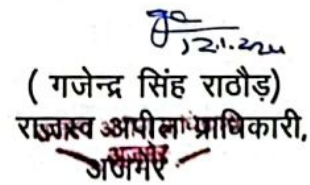 12.1.2024
( गजेन्द्र सिंह राठौड़)
राजस्व अपील प्राधिकारी,
अजमेर